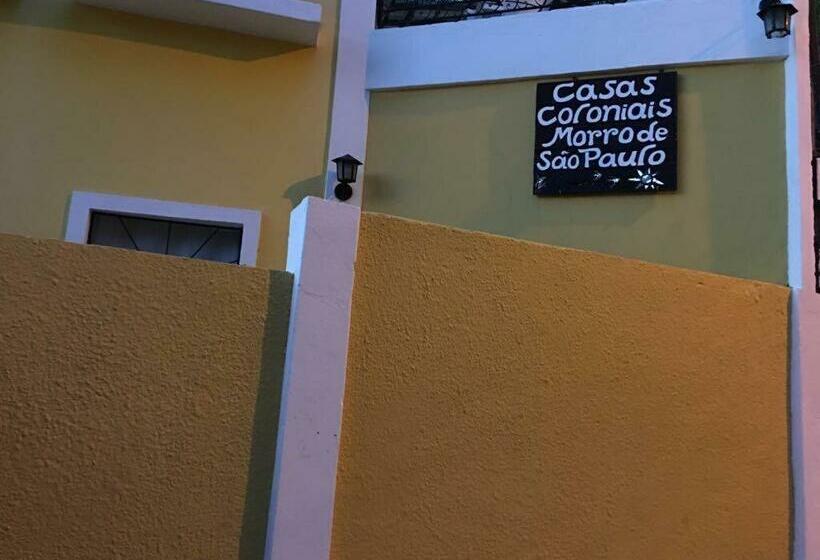 Casas
Coloniais
Morro de
São Paulo